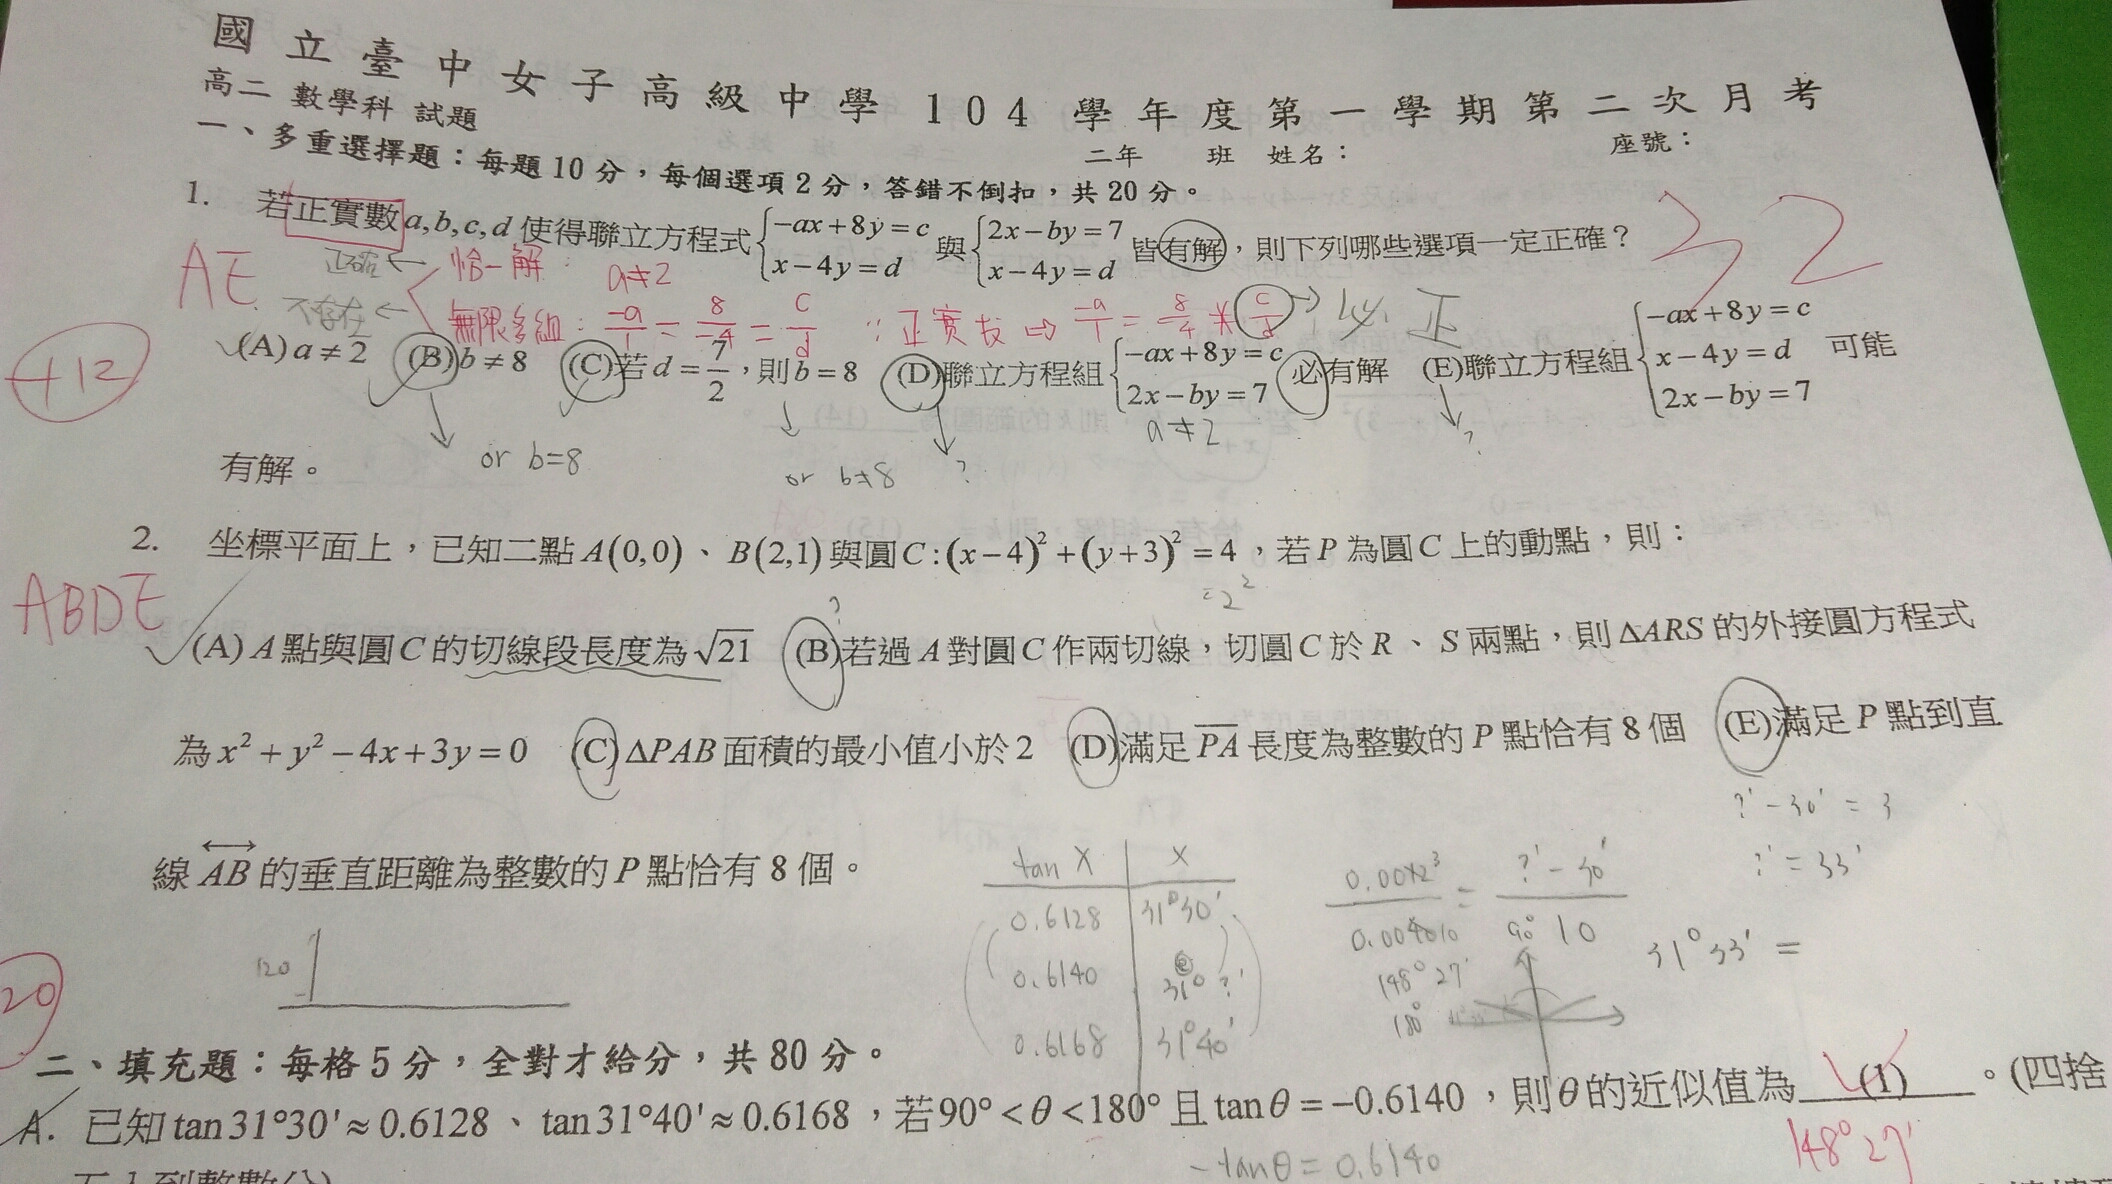 國立臺中女子高級中學 104 學年度第一學期第二次月考
高二 數學科 試題
二年 班 姓名: 座號:
一、多重選擇題:每題10分,每個選項2分,答錯不倒扣,共20分。
1. 若正實數a,b,c,d 使得聯立方程式{-ax+8y=c x-4y=d 與{2x-by=7 x-4y=d 皆有解,則下列哪些選項一定正確?
32
AE
正確 ← 恰一解: a≠2
不存在 ← 無限多組: -a/1 = 8/-4 = c/d ∵正實數 ⇒ -a/1 = 8/-4 ≠ c/d → 必 正
+12
(A) a≠2 (B) b≠8 (C)若d=7/2,則b=8 (D)聯立方程組{-ax+8y=c 2x-by=7 必有解 (E)聯立方程組{-ax+8y=c x-4y=d 2x-by=7 可能
a≠2
or b=8
or b≠8
?
?
有解。
2. 坐標平面上,已知二點A(0,0)、B(2,1)與圓C:(x-4)²+(y+3)²=4,若P為圓C上的動點,則:
=2²
ABDE
?
(A) A點與圓C的切線段長度為√21 (B)若過A對圓C作兩切線,切圓C於R、S兩點,則ΔARS的外接圓方程式
為x²+y²-4x+3y=0 (C)ΔPAB面積的最小值小於2 (D)滿足PA長度為整數的P點恰有8個 (E)滿足P點到直
?'-30' = 3
線AB的垂直距離為整數的P點恰有8個。
?' = 33'
tan X | X
0.6128 | 31°30'
0.6140 | 31° ?'
0.6168 | 31°40'
?'-30'
10
31°33' =
148°27'
180°
120
20
二、填充題:每格5分,全對才給分,共80分。
A. 已知tan31°30'≈0.6128、tan31°40'≈0.6168,若90°<θ<180°且tanθ=-0.6140,則θ的近似值為 (1) 。(四捨
148°27'
-tanθ = 0.6140